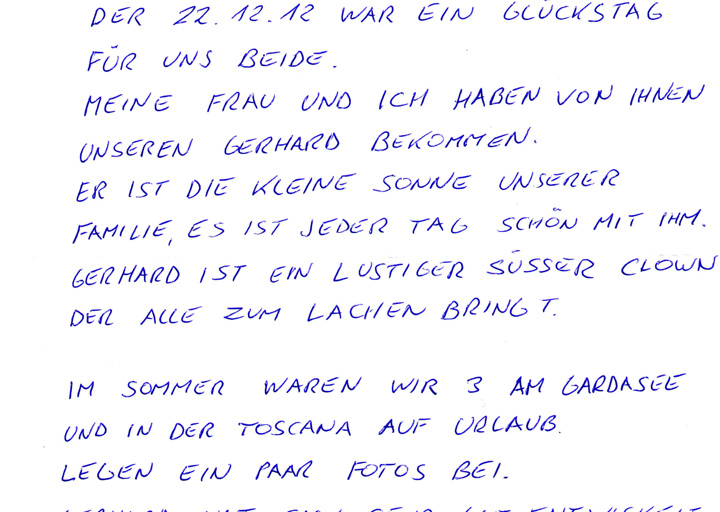 DER 22.12.12 WAR EIN GLÜCKSTAG
FÜR UNS BEIDE.
MEINE FRAU UND ICH HABEN VON IHNEN
UNSEREN GERHARD BEKOMMEN.
ER IST DIE KLEINE SONNE UNSERER
FAMILIE, ES IST JEDER TAG SCHÖN MIT IHM.
GERHARD IST EIN LUSTIGER SÜSSER CLOWN
DER ALLE ZUM LACHEN BRINGT.
IM SOMMER WAREN WIR 3 AM GARDASEE
UND IN DER TOSCANA AUF URLAUB.
LEGEN EIN PAAR FOTOS BEI.